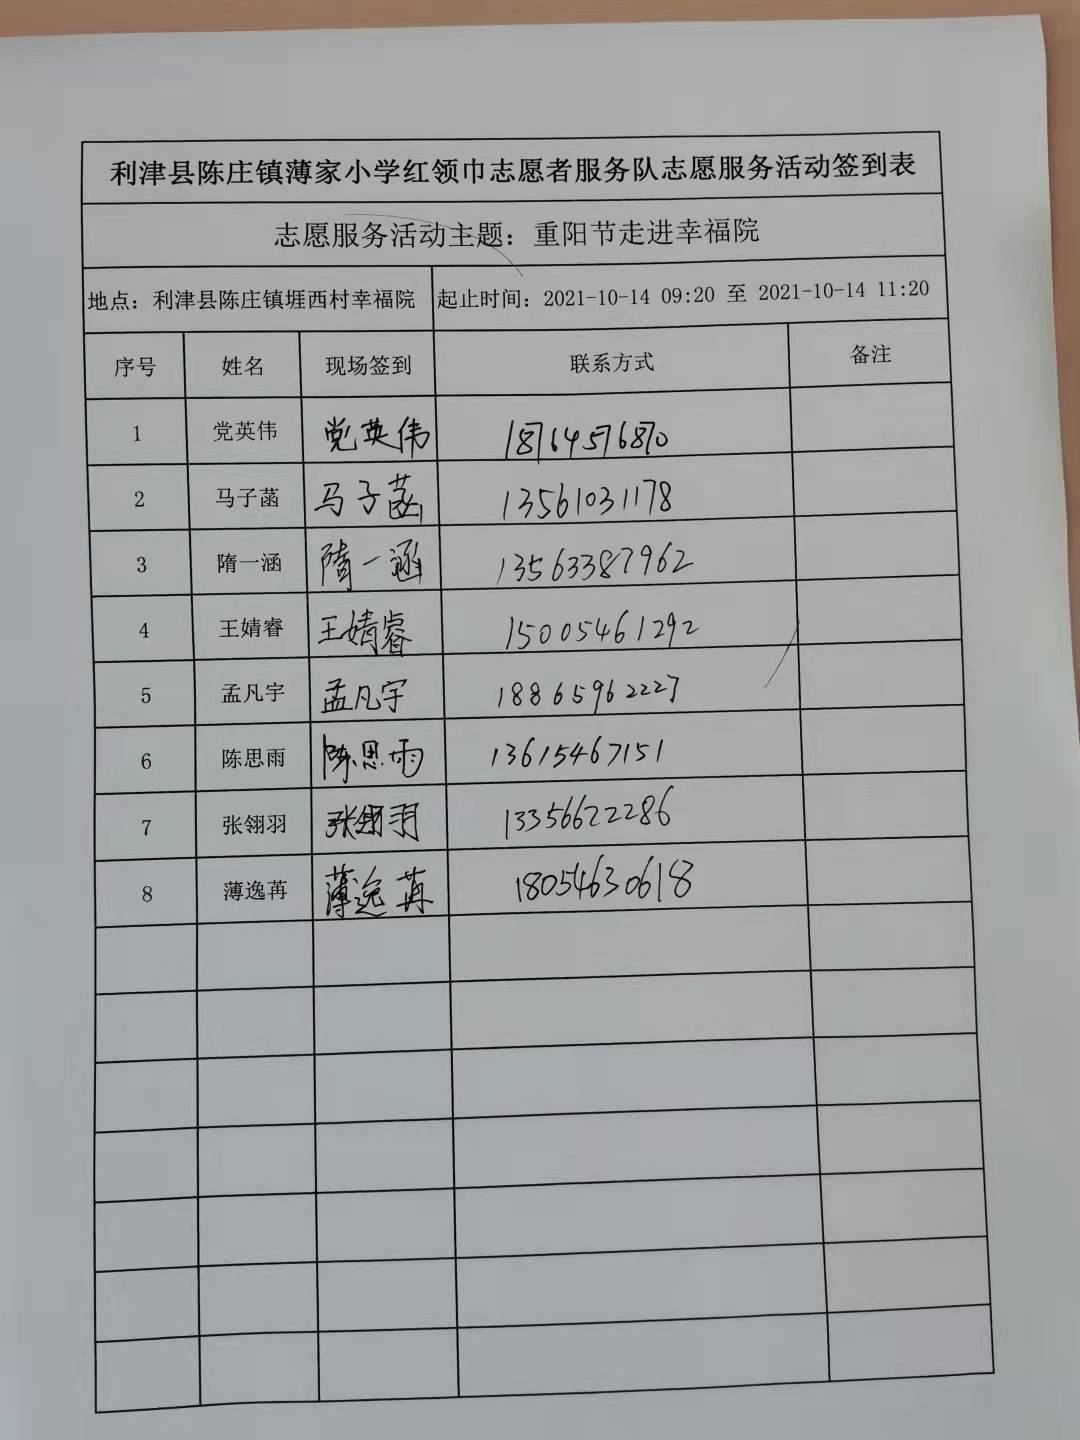 利津县陈庄镇薄家小学红领巾志愿者服务队志愿服务活动签到表
志愿服务活动主题：重阳节走进幸福院
地点：利津县陈庄镇堐西村幸福院 起止时间：2021-10-14 09:20 至 2021-10-14 11:20
序号 姓名 现场签到 联系方式 备注
1 党英伟 党英伟 18764576870
2 马子菡 马子菡 13561031178
3 隋一涵 隋一涵 13563387962
4 王婧睿 王婧睿 15005461292
5 孟凡宇 孟凡宇 18865962227
6 陈思雨 陈思雨 13615467151
7 张翎羽 张翎羽 13356622286
8 薄逸苒 薄逸苒 18054630618